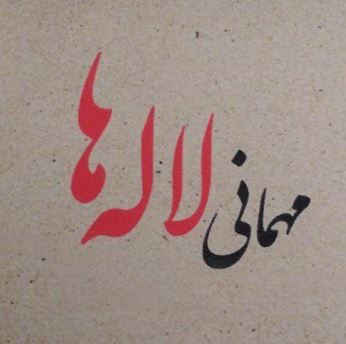 مهمانی لاله‌ها